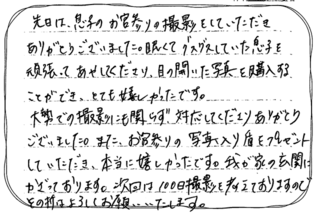 先日は、息子のお宮参りの撮影をしていただき
ありがとうございました。眠くてグズグズしていた息子を
頑張ってあやしてくださり、目の開いた写真を購入する
ことができ、とても嬉しかったです。
大勢での撮影にも関らず対応してくださりありがとう
ございました。また、お宮参りの写真で入り盾をプレゼント
していただき、本当に嬉しかったです。我が家の玄関に
かざっております。次回は100日撮影を考えておりますので
その折はよろしくお願いいたします。